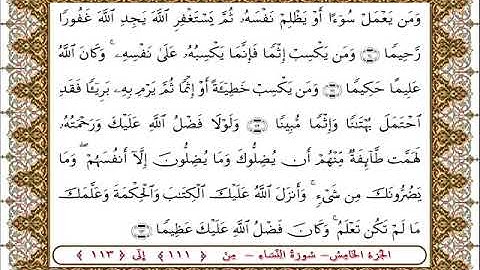 وَمَن يَعْمَلْ سُوٓءًا أَوْ يَظْلِمْ نَفْسَهُۥ ثُمَّ يَسْتَغْفِرِ ٱللَّهَ يَجِدِ ٱللَّهَ غَفُورًا
رَّحِيمًا ١١٠ وَمَن يَكْسِبْ إِثْمًا فَإِنَّمَا يَكْسِبُهُۥ عَلَىٰ نَفْسِهِۦ ۚ وَكَانَ ٱللَّهُ
عَلِيمًا حَكِيمًا ١١١ وَمَن يَكْسِبْ خَطِيٓـَٔةً أَوْ إِثْمًا ثُمَّ يَرْمِ بِهِۦ بَرِيٓـًٔا فَقَدِ
ٱحْتَمَلَ بُهْتَـٰنًا وَإِثْمًا مُّبِينًا ١١٢ وَلَوْلَا فَضْلُ ٱللَّهِ عَلَيْكَ وَرَحْمَتُهُۥ
لَهَمَّت طَّآئِفَةٌ مِّنْهُمْ أَن يُضِلُّوكَ وَمَا يُضِلُّونَ إِلَّآ أَنفُسَهُمْ ۖ وَمَا
يَضُرُّونَكَ مِن شَىْءٍ ۚ وَأَنزَلَ ٱللَّهُ عَلَيْكَ ٱلْكِتَـٰبَ وَٱلْحِكْمَةَ وَعَلَّمَكَ
مَا لَمْ تَكُن تَعْلَمُ ۚ وَكَانَ فَضْلُ ٱللَّهِ عَلَيْكَ عَظِيمًا ١١٣
الجزء الخامس – سورة النساء – من ﴿١١١﴾ إلى ﴿١١٣﴾